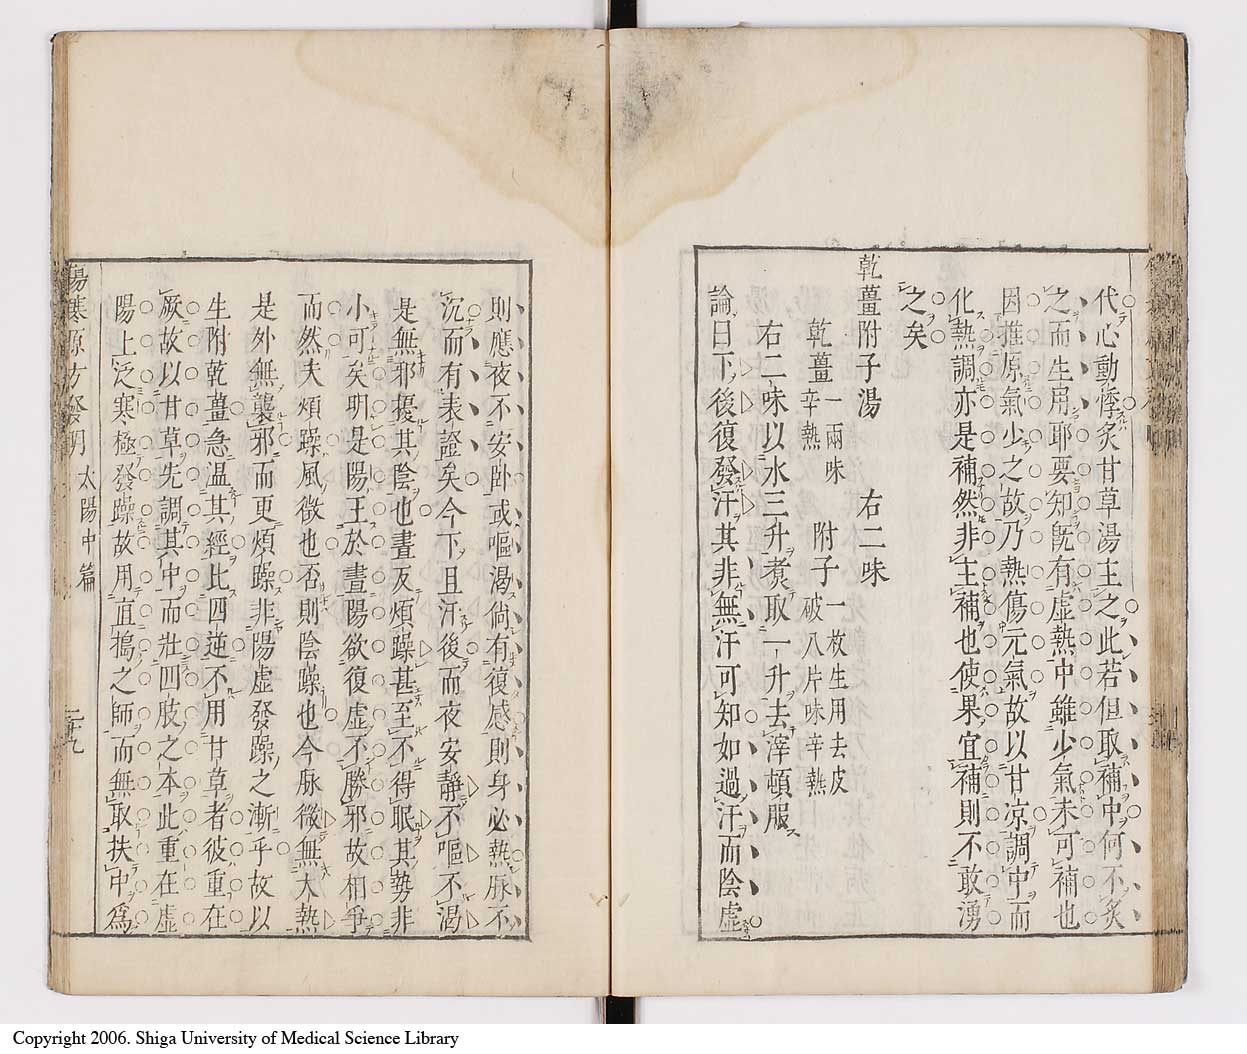 代心動悸炙甘草湯主之此若但取補中何不炙
之而生用耶要知旣有虛熱中雖少氣未可補也
因推原氣少之故乃熱傷元氣故以甘凉調中而
化熱調亦是補然非主補也使果宜補則不敢湧
之矣
乾薑附子湯 右二味
乾薑一兩味辛熱 附子一枚生用去皮破八片味辛熱
右二味以水三升煮取一升去滓頓服
論曰下後復發汗其非無汗可知如過汗而陰虛
則應夜不安卧或嘔渴倘有復感則身必熱脈不
沉而有表證矣今下且汗後而夜安靜不嘔不渴
是無邪擾其陰也晝反煩躁甚至不得眠其勢非
小可矣明是陽王於晝陽欲復虛不勝邪故相爭
而然夫煩躁風徵也否則陰躁也今脉微無大熱
是外無襲邪而更煩躁非陽虛發躁之漸乎故以
生附乾薑急温其經比四逆不用甘草者彼重在
厥故以甘草先調其中而壯四肢之本此重在虛
陽上泛寒極發躁故用直搗之師而無取扶中爲
傷寒原方發明 太陽中篇 二十九
Copyright 2006. Shiga University of Medical Science Library